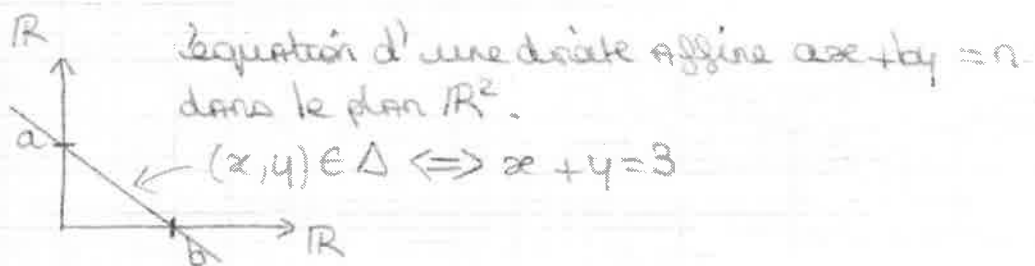 ℝ
l'equation d'une droite affine ax + by = n
dans le plan ℝ².
a
(x,y) ∈ Δ <=> x + y = 3
ℝ
b